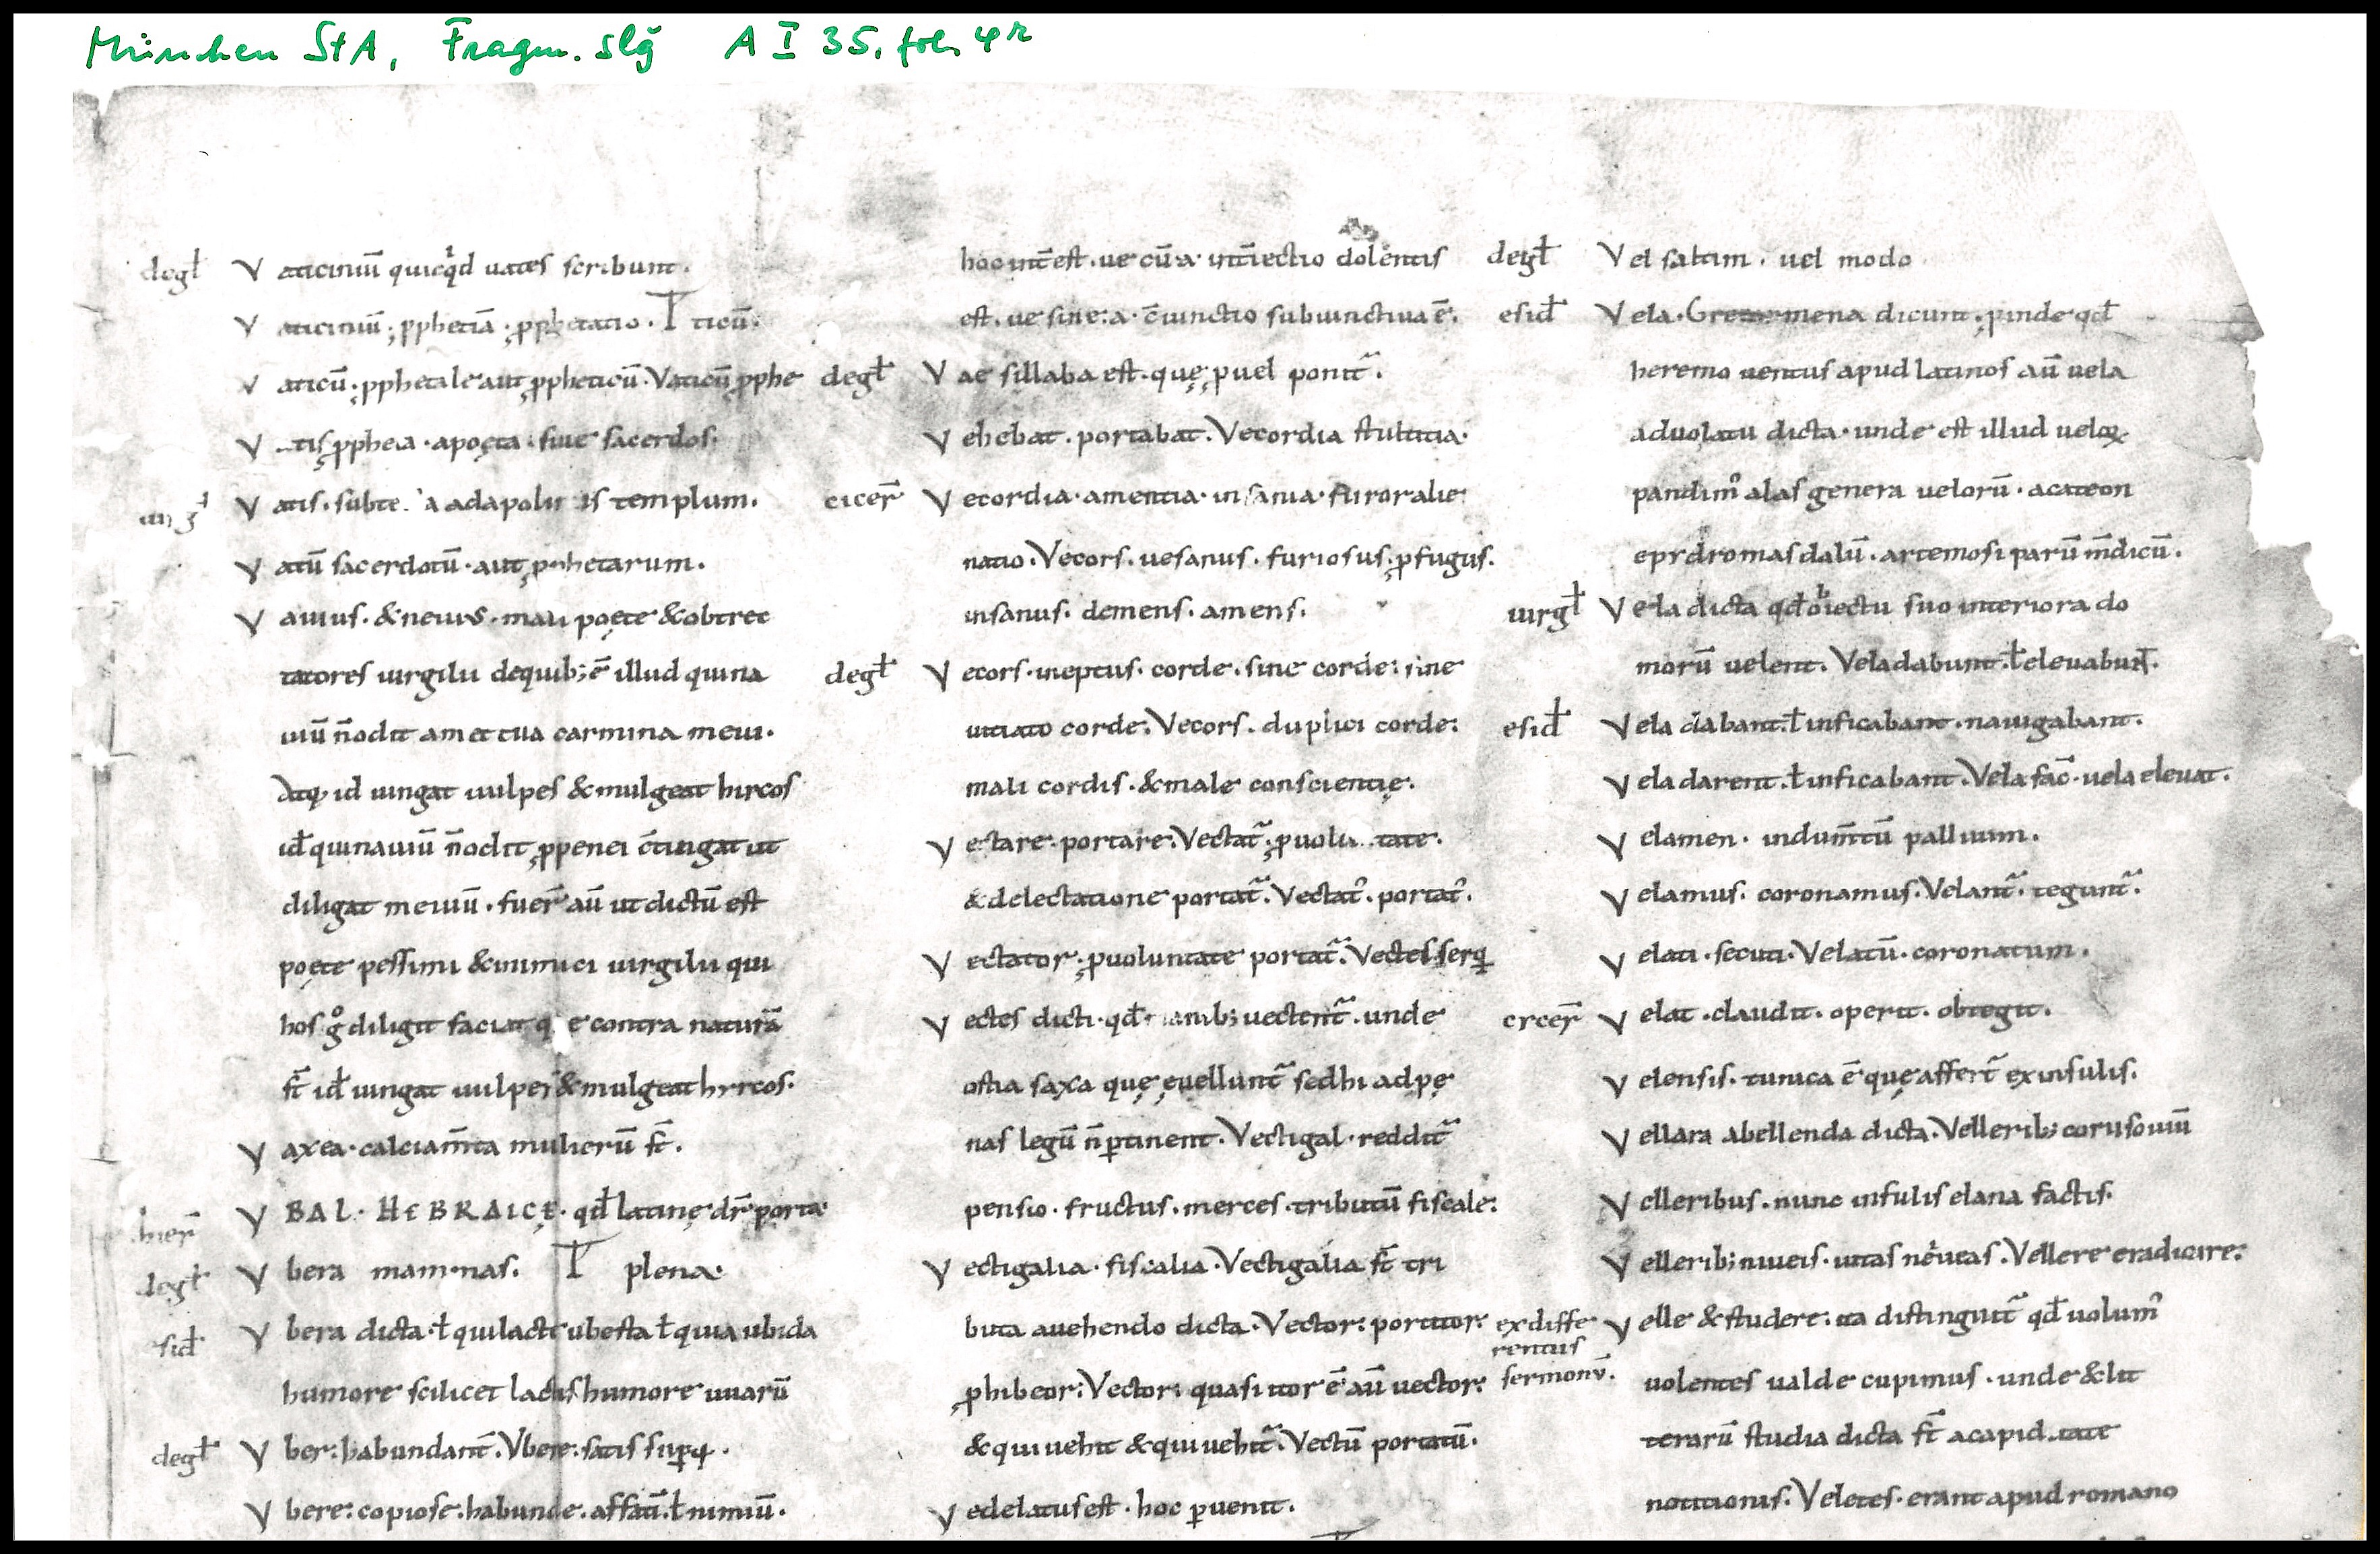 München StA, Fragm. slg A I 35, fol. 4r
degł Vaticiniū quicqd uates scribunt.
Vaticiniū; pphetiā; pphetatio. T ticū.
Vaticū; pphetale aut ppheticū. Vaticiū pphe
V tis ppheta. a poęta. siue sacerdos.
Vatis. subte a ad apolli is templum.
Vatū sacerdotū. aut pphetarum.
Vauius. & neuius. mali poęte & obtrec
tatores uirgilii de quib; ē illud qui ua
uiū n̄ odit amet tua carmina meui.
Atq; id iungat uulpes & mulgeat hircos
id qui nauiū n̄ odit, p penei c̄tingat ut
diligat meuiū. fuer̄ aū ut dictū est
poęte pessimi & inimici uirgilii qui
hos gͦ diligit faciat q e contra naturā
st̄ id iungat uulpes & mulgeat hyrcos.
Vaxea. calciam̄ta mulierū st̄.
hier̄ VBAL. HEBRAICĘ. qđ latinę dr̄ porta.
degł Vbera mammas. T plena.
esid Vbera dicta. ł qui lacte ubesta ł quia ubida
humore scilicet lactis humore uuarū
degł Vber: habundant̄. Vbere: satis supq.
Vbere: copiose. habunde. affatī. ł nimiū.
hoc int̄ est. ue cū a int̄iectio dolentis
est. ue sine: a. c̄iunctio subiunctiua ē.
degł Vae sillaba est. quę; p uel ponit̄.
Vehebat. portabat. Vecordia stultitia.
cicer̄ Vecordia. amentia. insania. furor alie
natio. Vecors. uesanus. furiosus; pfugus.
insanus. demens. amens.
degł Vecors. ineptus. corde. sine corde: sine
uitiato corde: Vecors. duplici corde:
mali cordis. & male conscientię.
Vectare. portare: Vectat̄; p uolu tate.
& delectatione portat̄. Vectat̄. portat̄.
Vectator; p uoluntate portat̄. Vectes serq
Vectes dicti. qđ manib; uectent̄. unde
ostia saxa quę euellunt̄ sed hi ad pę
nas legū n̄ ptinent. Vectigal. reddit̄
pensio. fructus. merces. tributū fiscale:
Vectigalia. fiscalia. Vectigalia st̄ tri
buta a uehendo dicta. Vector: portitor:
phibeor: Vector: quasi uitor ē aū uector:
& qui uehit & qui uehit̄. Vectū portatū.
Vedelatus est. hoc puenit.
degł Vel saltim. uel modo
esid Vela. Gre mena dicunt; pinde qđ
heremo uentus apud latinos aū uela
a duolatu dicta. unde est illud uelox
pandim̄ alas genera uelorū. acateon
epydromas dalū. artemosi parū m̄dicū.
uirgł Vela dicta qđ obiectu suo interiora do
morū uelent. Vela dabunt. ł eleuabunt.
esid Vela dabant. ł inficabant. nauigabant.
Vela darent. ł inficabant. Vela fac̄. uela eleuat.
Velamen. indum̄tū pallium.
Velamus. coronamus. Velant̄. tegunt̄.
Velati. secuti. Velatū. coronatum.
cicer̄ Velat. claudit. operit. obtegit.
Velensis. tunica ē quę affert̄ ex insulis.
Vellara a bellenda dicta. Vellerib; coru souiū
Velleribus. nunc infulis e lana factis.
Vellerib; niueis. uitas nerueas. Vellere eradicare:
ex diffe Velle & studere: ita distinguit̄ qđ uolum̄
rentiis
sermonū. uolentes ualde cupimus. unde & lit
terarū studia dicta st̄ a capid tate
notitionis. Veletes. erant apud romano